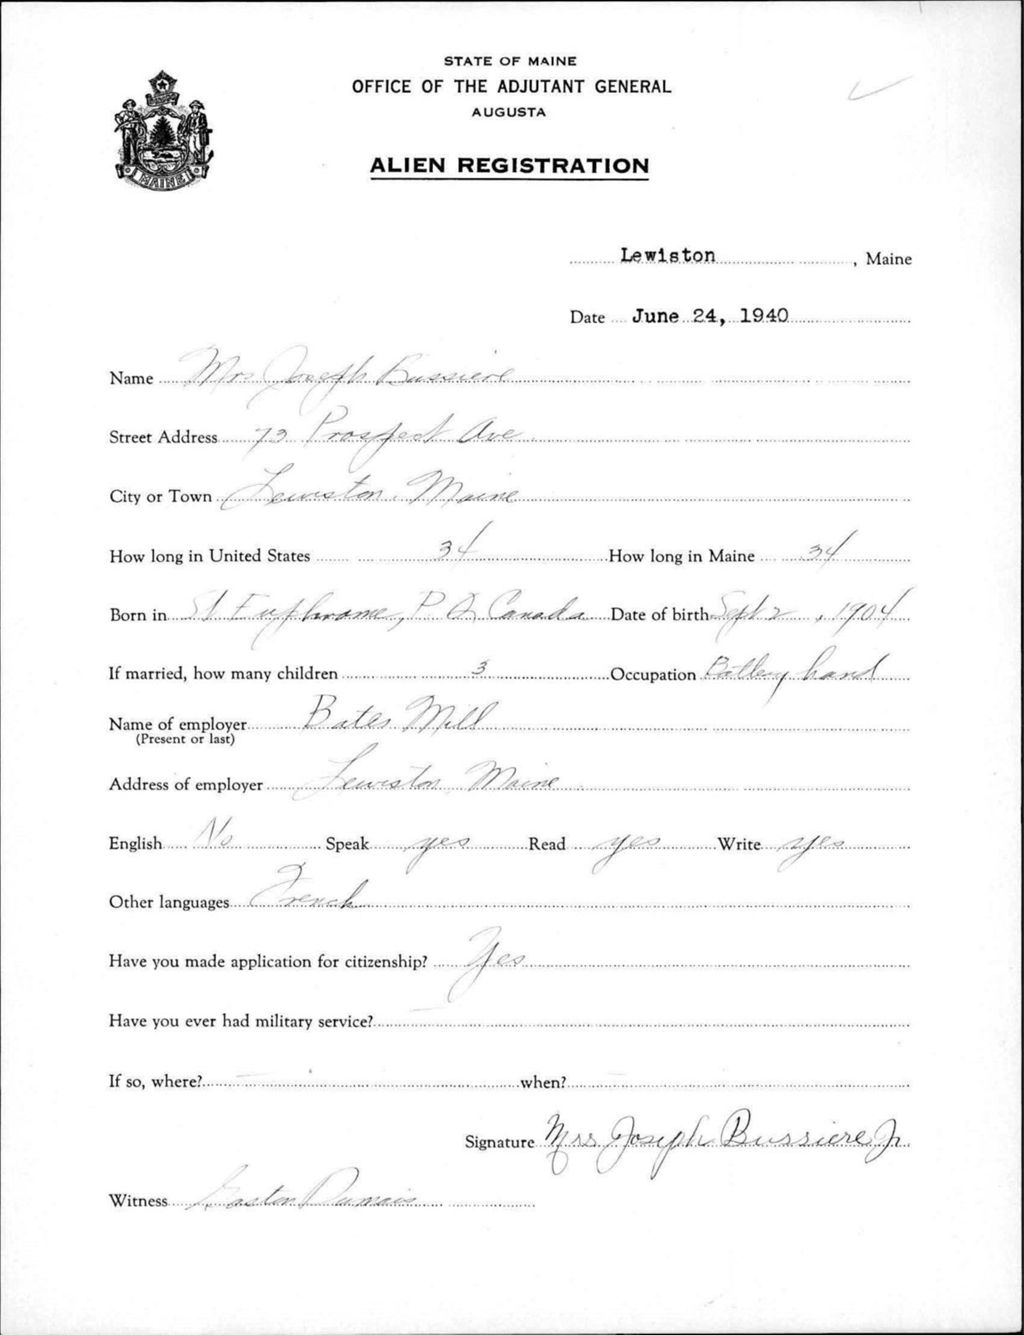 STATE OF MAINE
OFFICE OF THE ADJUTANT GENERAL
AUGUSTA
MAINE
ALIEN REGISTRATION
Lewiston, Maine
Date June 24, 1940
Name Mrs Joseph Bussiere
Street Address 73 Prospect Ave
City or Town Lewiston, Maine
How long in United States 34 How long in Maine 34
Born in St Euphrome, P Q Canada Date of birth Sept 2, 1904
If married, how many children 3 Occupation Battery hand
Name of employer Bates Mill
(Present or last)
Address of employer Lewiston, Maine
English No Speak yes Read yes Write yes
Other languages French
Have you made application for citizenship? Yes
Have you ever had military service?
If so, where? when?
Signature Mrs. Joseph Bussiere Jr.
Witness Gaston Dumais